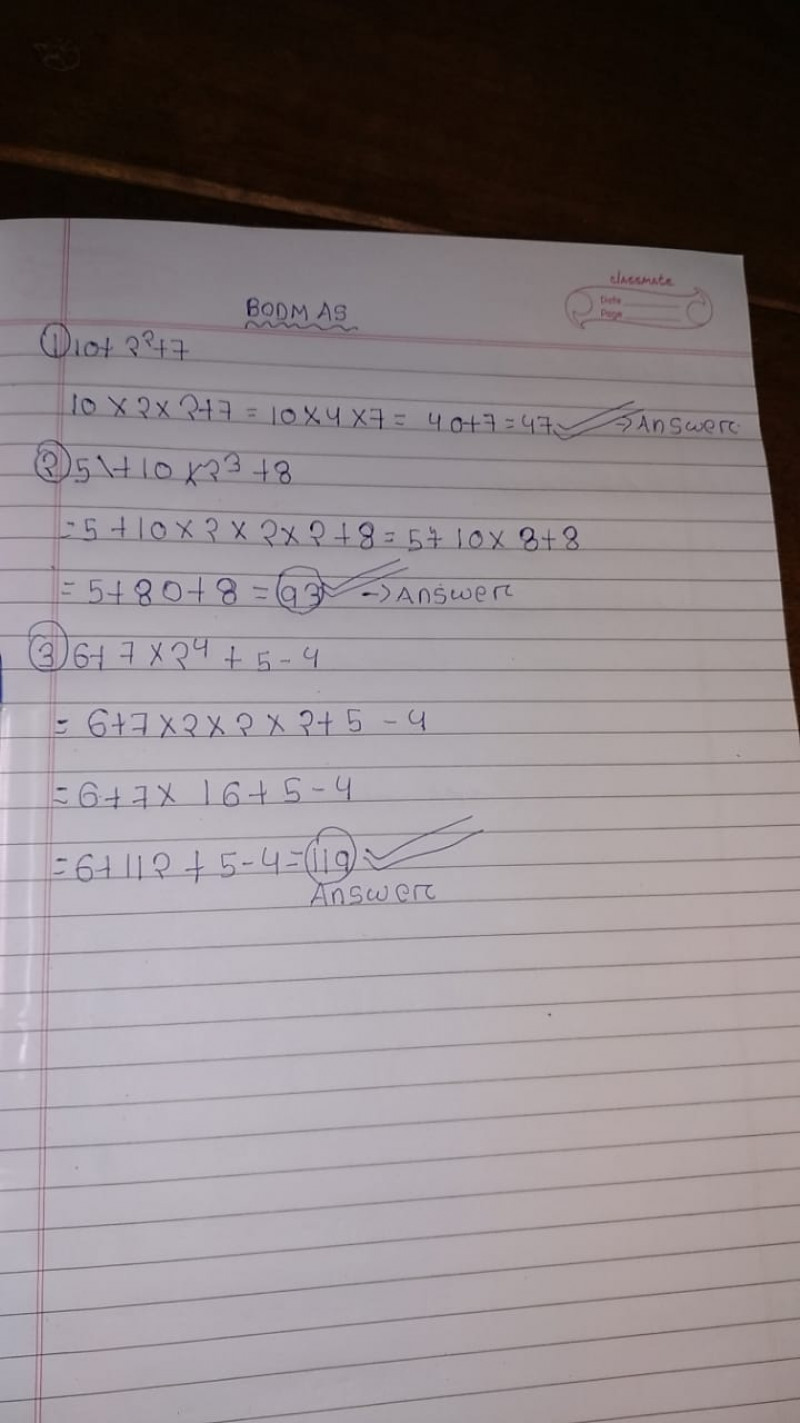 classmate
Date
Page
BODMAS
① 10+2²+7
10×2×2+7=10×4×7= 40+7=47 → Answer
② 5+10×2³+8
=5+10×2×2×2+8=5+10×8+8
=5+80+8=93 → Answer
③ 6+7×2⁴+5-4
= 6+7×2×2×2+5-4
=6+7×16+5-4
=6+112+5-4=119
Answer